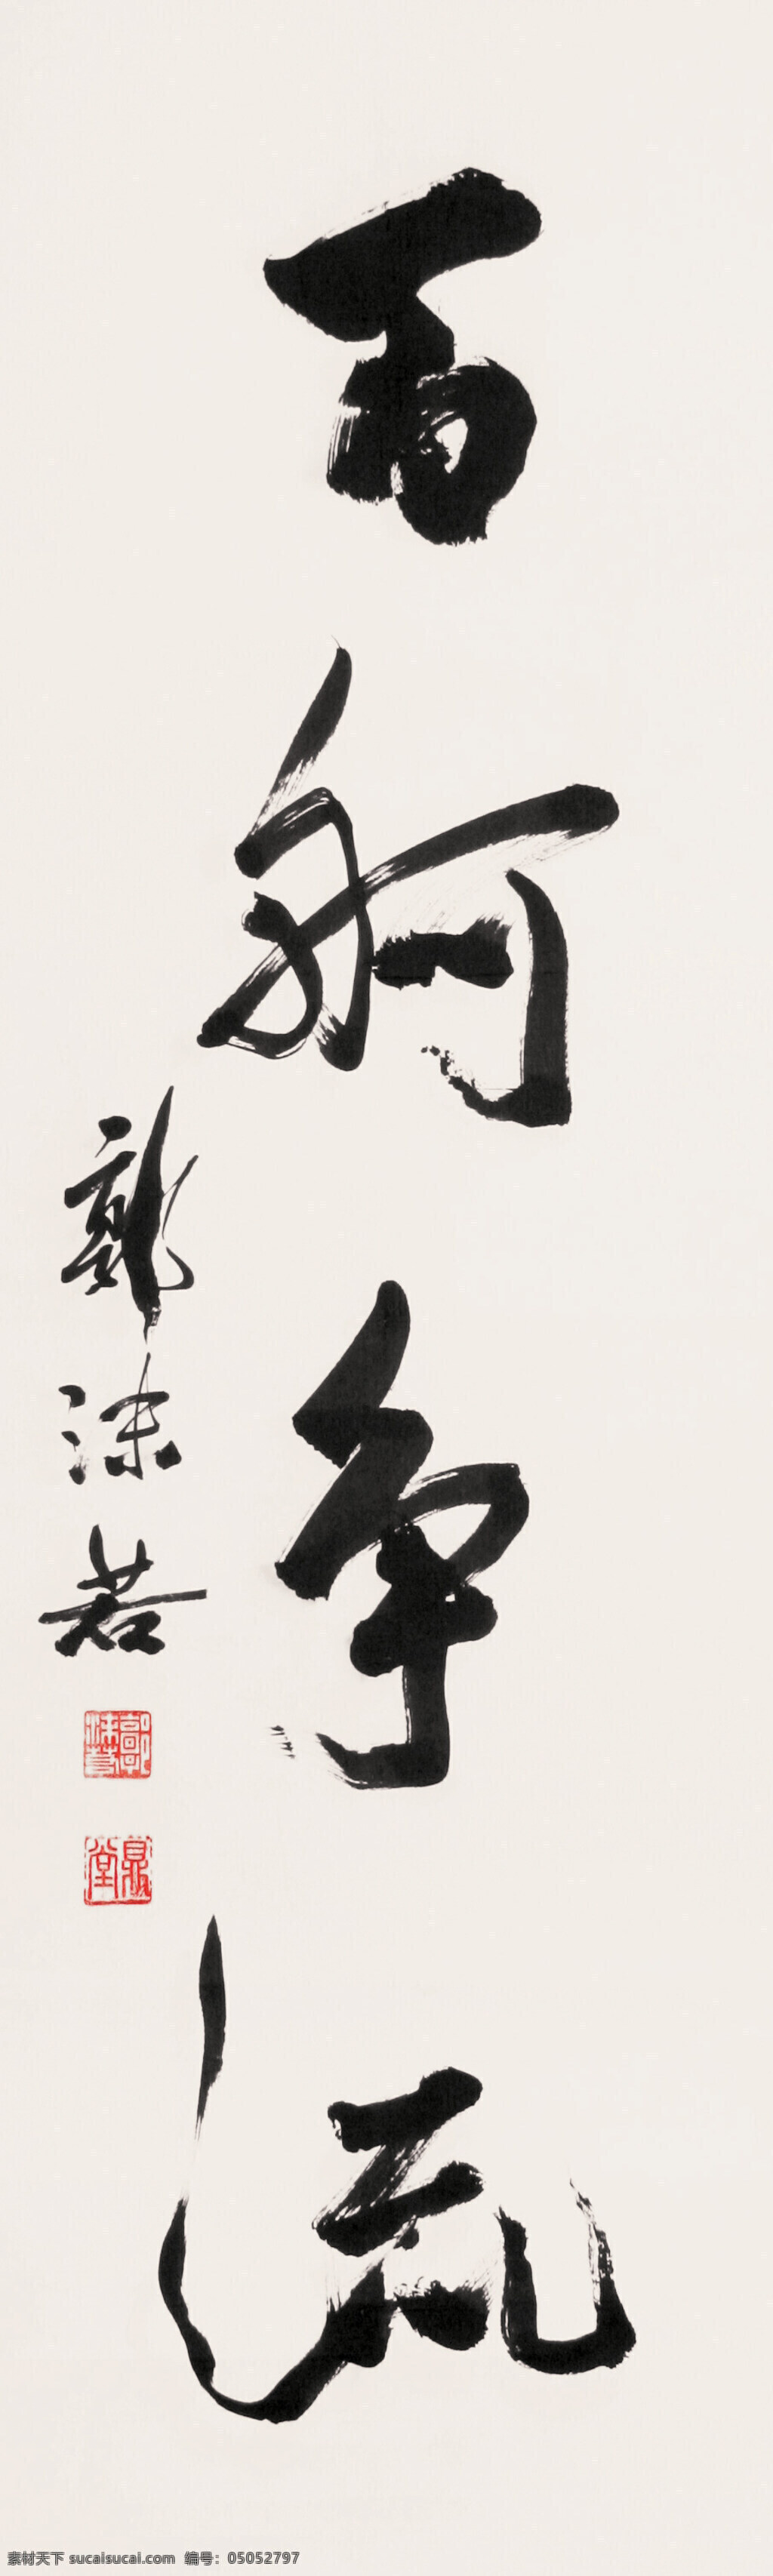 百舸争流
郭沫若
郭沫若
鼎堂
素材天下 sucaisucai.com 编号：05052797